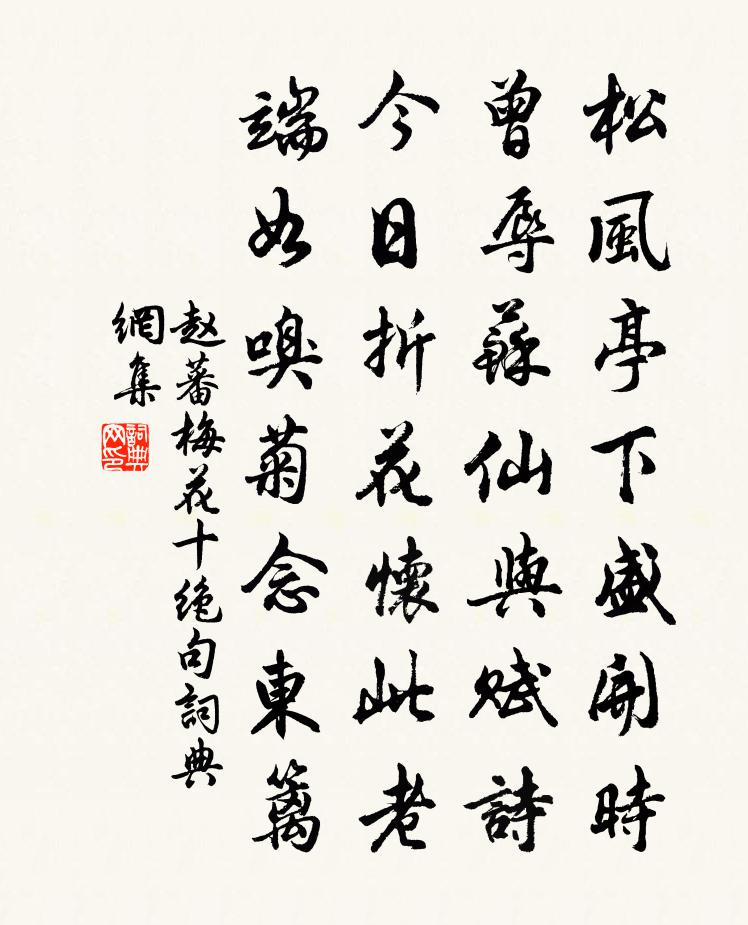 松風亭下盛開時
曾辱蘇仙與賦詩
今日折花懷此老
端如嗅菊念東籬
赵蕃梅花十絶句詞典
網集
詞典
网印